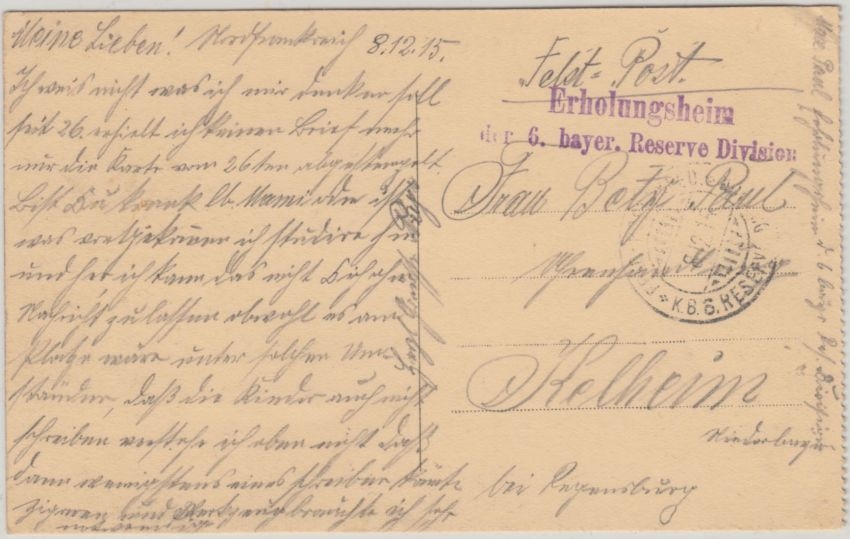 Meine Lieben! Nordfrankreich 8.12.15.
Ich weis nicht was ich mir denken soll
seit 26. erhielt ich keinen Brief mehr
nur die Karte vom 26ten abgestempelt.
Bist Du krank lb. Mami oder ist
was ich studire hin
und her ich kann das nicht
Nachricht zu lassen obwohl es am
Platze wäre unter solchen Um-
ständen, daß die Kinder auch nicht
schreiben verstehe ich eben nicht daß
dann wenigstens eines schreiben könnte
Zigarren und Werkzeug brauchte ich sehr
notwendig
Feld-Post.
Erholungsheim
der 6. bayer. Reserve Division
Frau Betz Paul
Uhrenhandlung
Kelheim
Niederbayern
bei Regensburg
K.B.6. RESERVE
Max Paul Erholungsheim d. 6 bayr. Res. Division